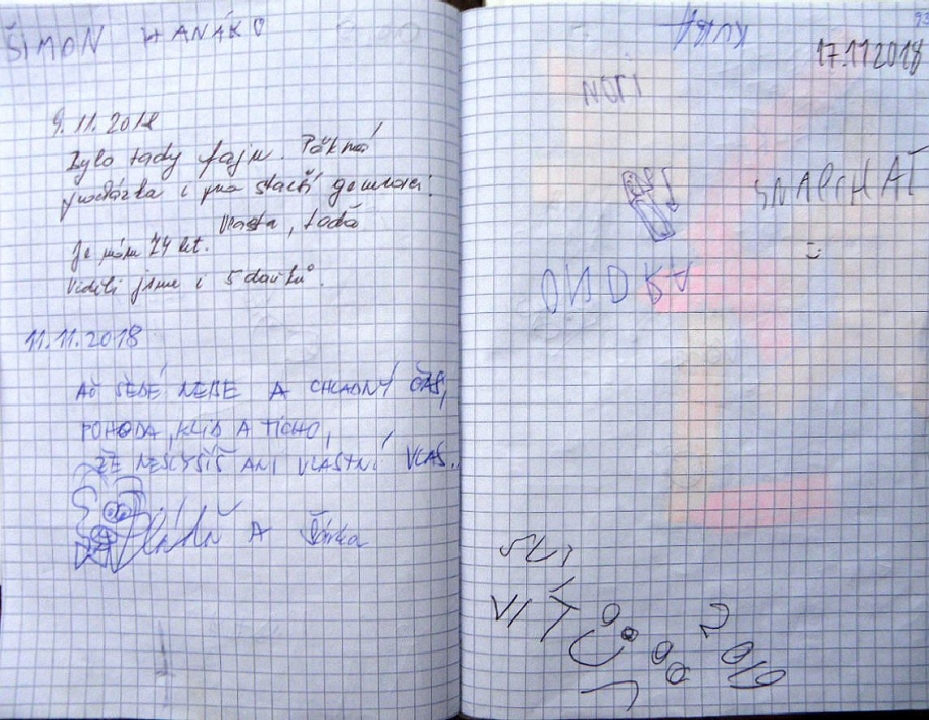 ŠIMON HANÁK
9.11.2018
Bylo tady fajn. Pěkná
procházka i pro starší generaci.
Vlasta, Láďa
Je nám 74 let.
Viděli jsme i 5 daňků.
11.11.2018
AČ ŠEDÉ NEBE A CHLADNÝ ČAS,
POHODA, KLID A TICHO,
ŽE NESLYŠÍŠ ANI VLASTNÍ HLAS..
A Šárka
93
KUBA
17.11 2018
NOTI
SNAPCHAT
:)
ONDRA
VÍT
2019